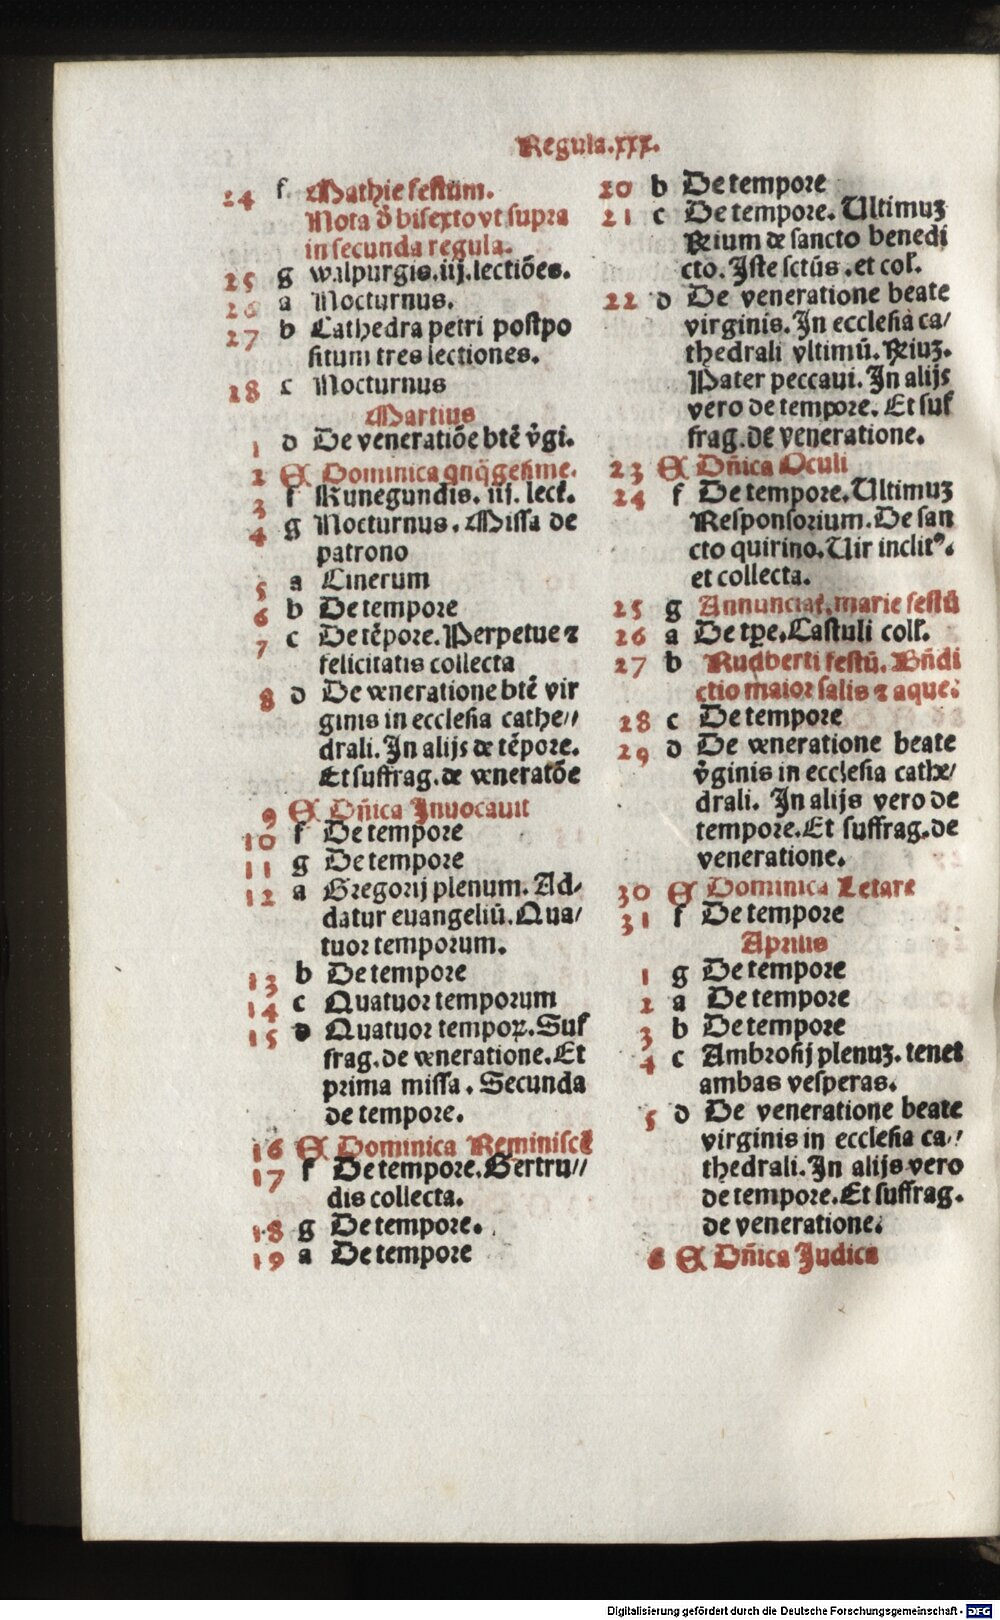 Regula.xxx.
24 f Mathie festum.
Nota d̄ bisexto vt supra
in secunda regula.
25 g walpurgis.iij.lectiões.
26 a Nocturnus.
27 b Cathedra petri postpo
situm tres lectiones.
28 c Nocturnus
Martius
1 d De veneratiõe btē v̄gi.
2 E Dominica qnq̄gesime.
3 f Kunegundis. iij. lect.
4 g Nocturnus. Missa de
patrono
5 a Cinerum
6 b De tempore
7 c De tēpore. Perpetue ⁊
felicitatis collecta
8 d De veneratione btē vir
ginis in ecclesia cathe//
drali. In alijs de tēpore.
Et suffrag. de veneratōe
9 E Dñica Inuocauit
10 f De tempore
11 g De tempore
12 a Gregorij plenum. Ad/
datur euangeliū. Qua/
tuor temporum.
13 b De tempore
14 c Quatuor temporum
15 d Quatuor tempoꝝ. Suf
frag. de veneratione. Et
prima missa. Secunda
de tempore.
16 E Dominica Reminiscē
17 f De tempore. Gertru//
dis collecta.
18 g De tempore.
19 a De tempore
20 b De tempore
21 c De tempore. Ultimuʒ
Rium de sancto benedi
cto. Iste sctūs. et col.
22 d De veneratione beate
virginis. In ecclesia ca/
thedrali vltimū. Riuʒ.
Pater peccaui. In alijs
vero de tempore. Et suf
frag. de veneratione.
23 E Dñica Oculi
24 f De tempore. Ultimuʒ
Responsorium. De san
cto quirino. Uir inclitꝰ.
et collecta.
25 g Annunciat. marie festū
26 a De tꝑe. Castuli coll.
27 b Rudberti festū. Bñdi
ctio maior salis ⁊ aque.
28 c De tempore
29 d De veneratione beate
v̄ginis in ecclesia cathe/
drali. In alijs vero de
tempore. Et suffrag. de
veneratione.
30 E Dominica Letare
31 f De tempore
Aprilis
1 g De tempore
2 a De tempore
3 b De tempore
4 c Ambrosij plenuʒ. tenet
ambas vesperas.
5 d De veneratione beate
virginis in ecclesia ca//
thedrali. In alijs vero
de tempore. Et suffrag.
de veneratione.
6 E Dñica Judica
Digitalisierung gefördert durch die Deutsche Forschungsgemeinschaft - DFG